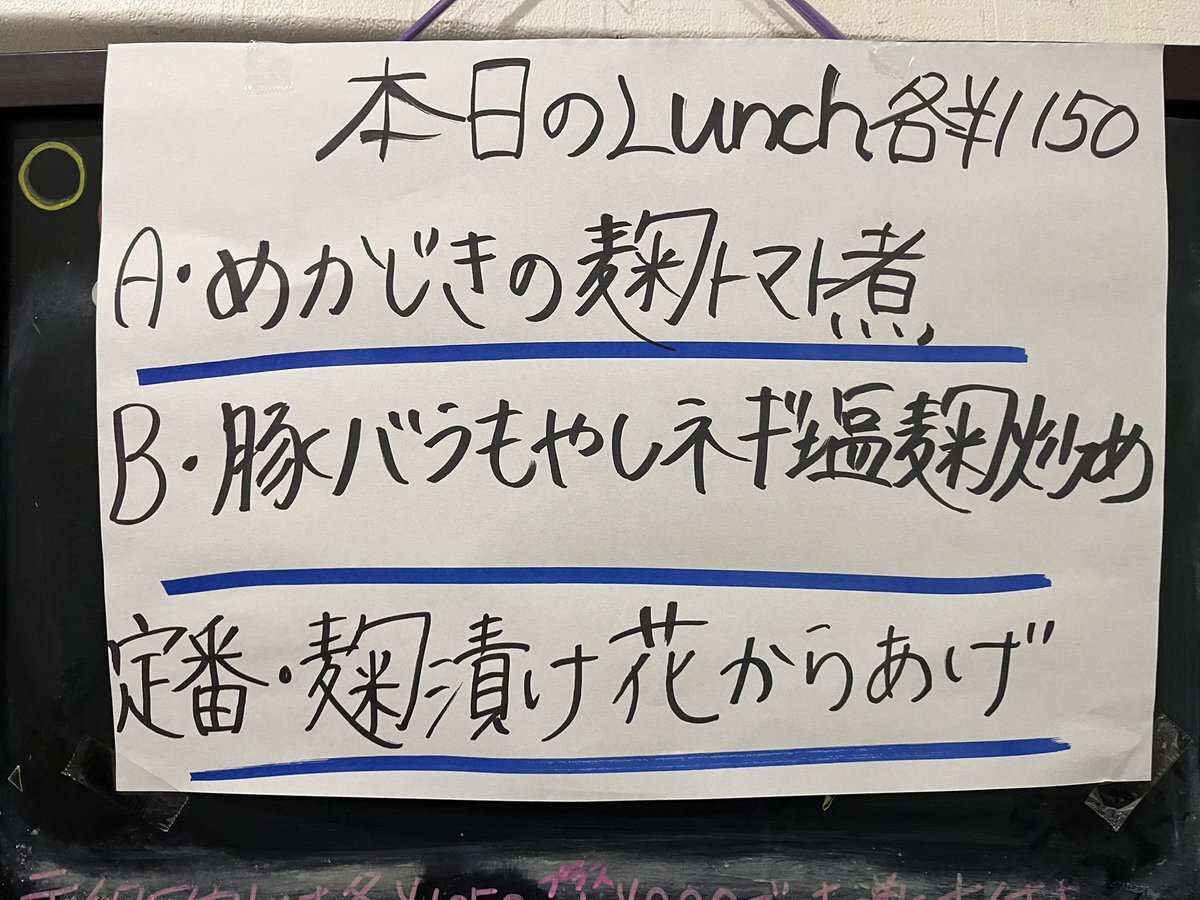 本日のLunch各¥1150
A・めかじきの麹トマト煮
B・豚バラもやしネギ塩麹炒め
定番・麹漬け花からあげ
プラス